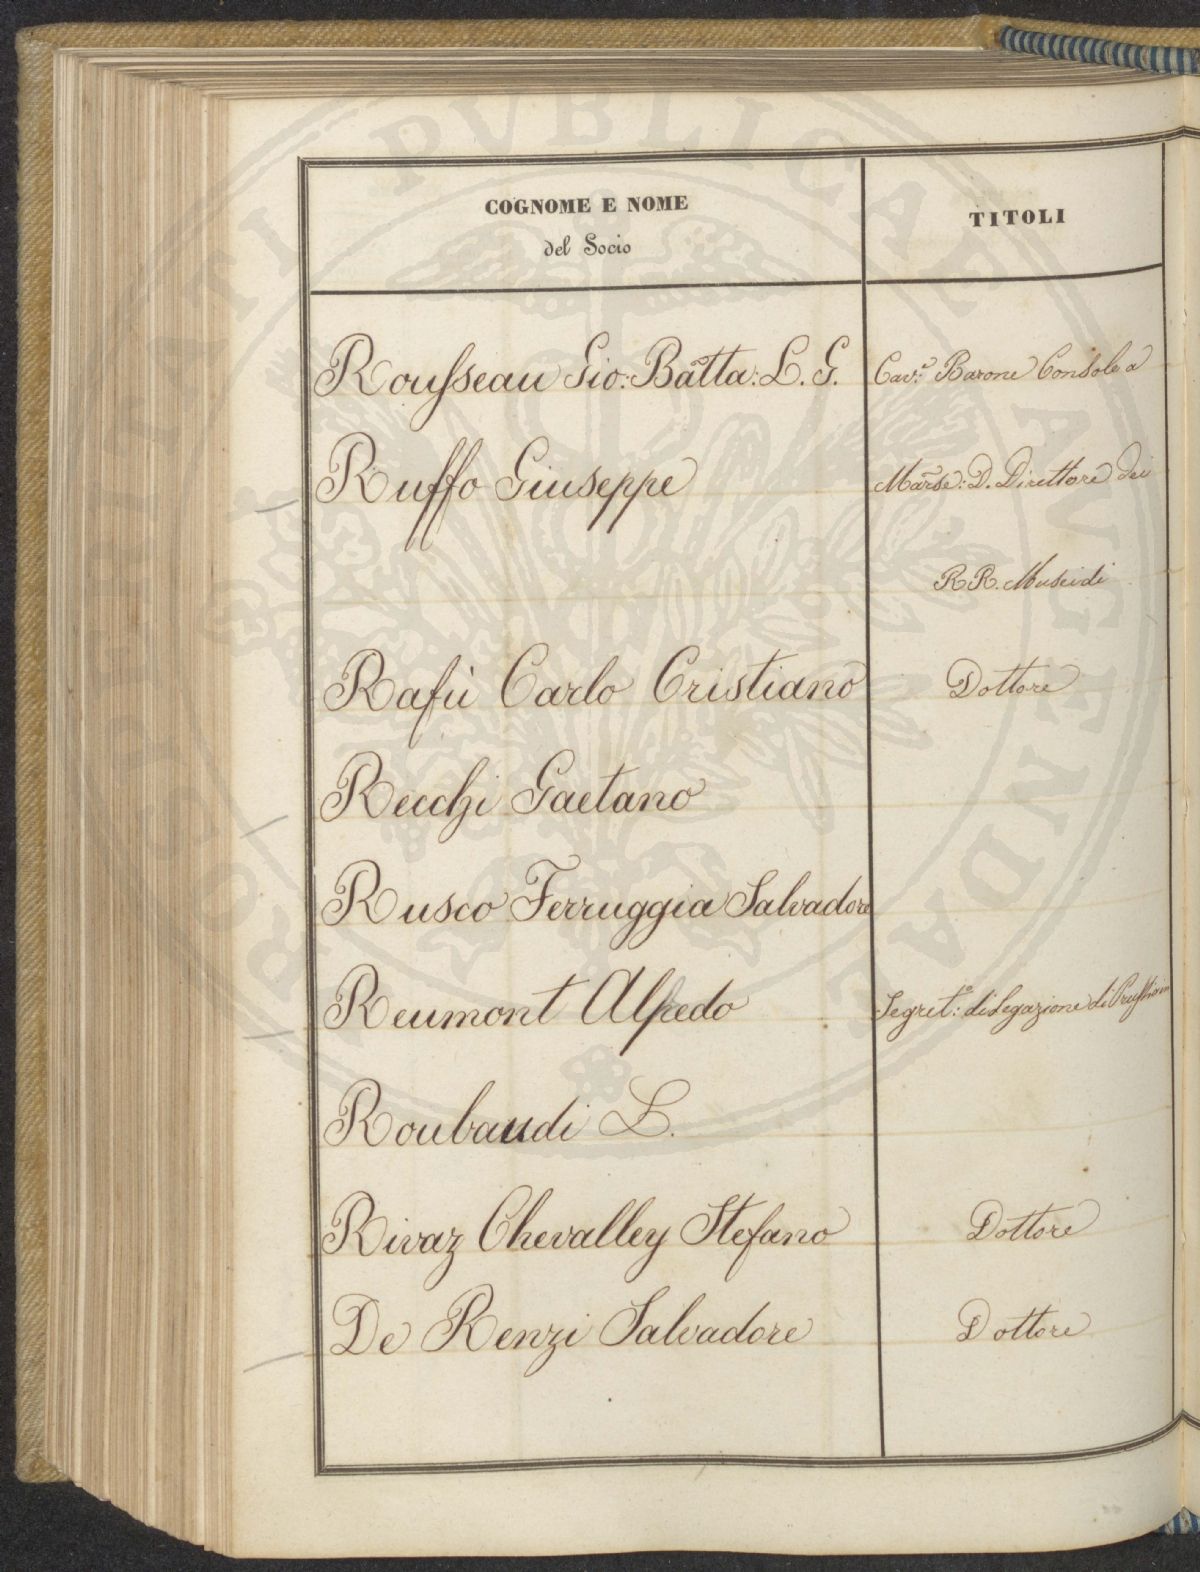 COGNOME E NOME
del Socio
TITOLI
Rousseau Gio: Batta: L. G. Cav:e Barone Console a
Ruffo Giuseppe Marse: D. Direttore dei
R R. Musei di
Rafù Carlo Cristiano Dottore
Recchi Gaetano
Rusco Ferruggia Salvadore
Reumont Alfredo Segret:o di Legazione di Prussia in
Roubaudi L.
Rivaz Chevalley Stefano Dottore
De Renzi Salvadore Dottore
PROSPERITATI PVBLICAE AVGENDAE